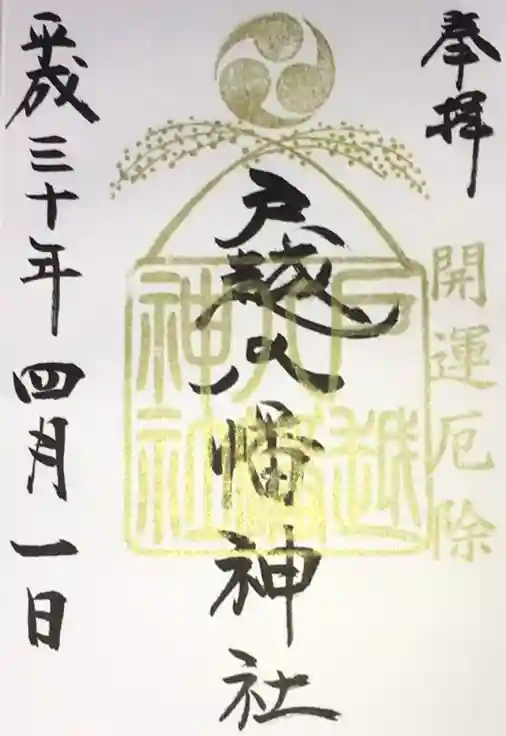 奉拝
開運厄除
戸越八幡神社
戸越八幡神社
平成三十年四月一日